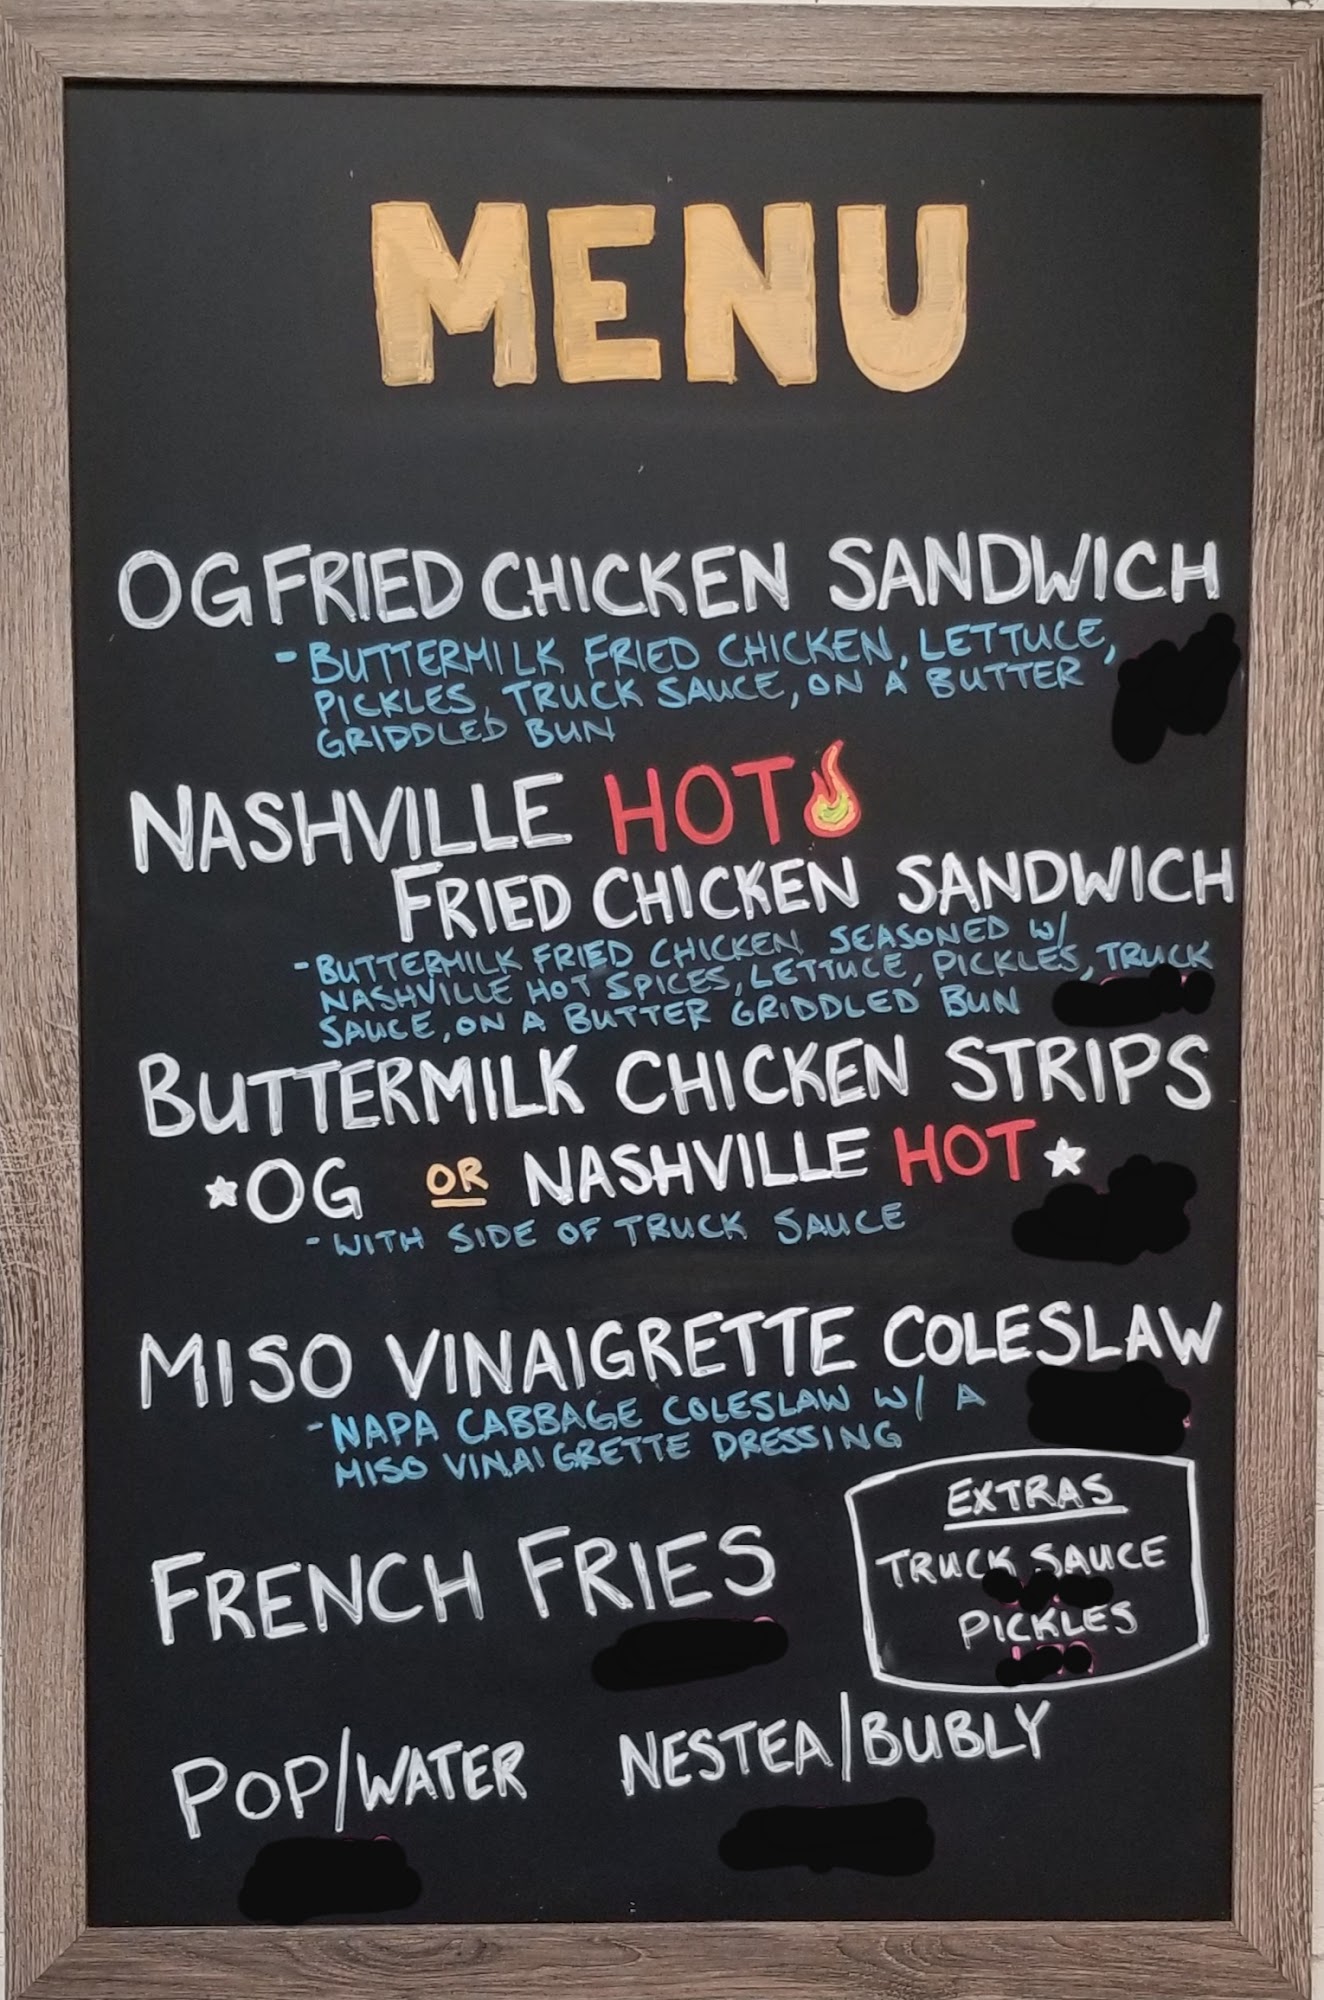 MENU
OG FRIED CHICKEN SANDWICH
- BUTTERMILK FRIED CHICKEN, LETTUCE,
PICKLES, TRUCK SAUCE, ON A BUTTER
GRIDDLED BUN
NASHVILLE HOT
FRIED CHICKEN SANDWICH
- BUTTERMILK FRIED CHICKEN, SEASONED W/
NASHVILLE HOT SPICES, LETTUCE, PICKLES, TRUCK
SAUCE, ON A BUTTER GRIDDLED BUN
BUTTERMILK CHICKEN STRIPS
*OG OR NASHVILLE HOT*
- WITH SIDE OF TRUCK SAUCE
MISO VINAIGRETTE COLESLAW
- NAPA CABBAGE COLESLAW W/ A
MISO VINAIGRETTE DRESSING
FRENCH FRIES
EXTRAS
TRUCK SAUCE
PICKLES
POP/WATER
NESTEA/BUBLY